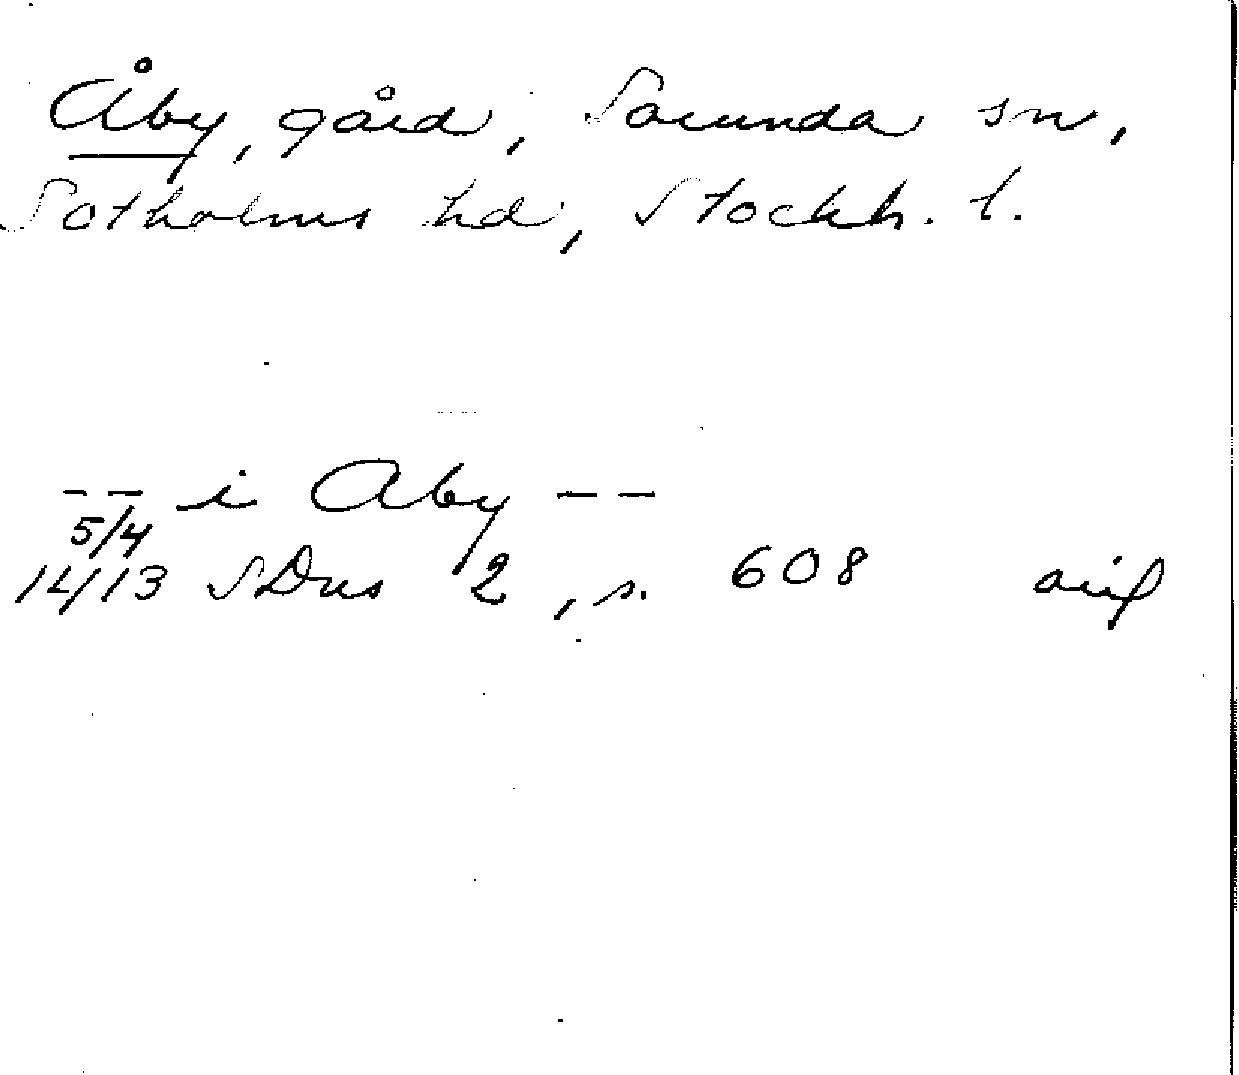 Åby, gård, Sorunda sn,
Sotholms hd, Stockh. l.
-- i Aby --
5/4
1413 SDns 2, s. 608 avif